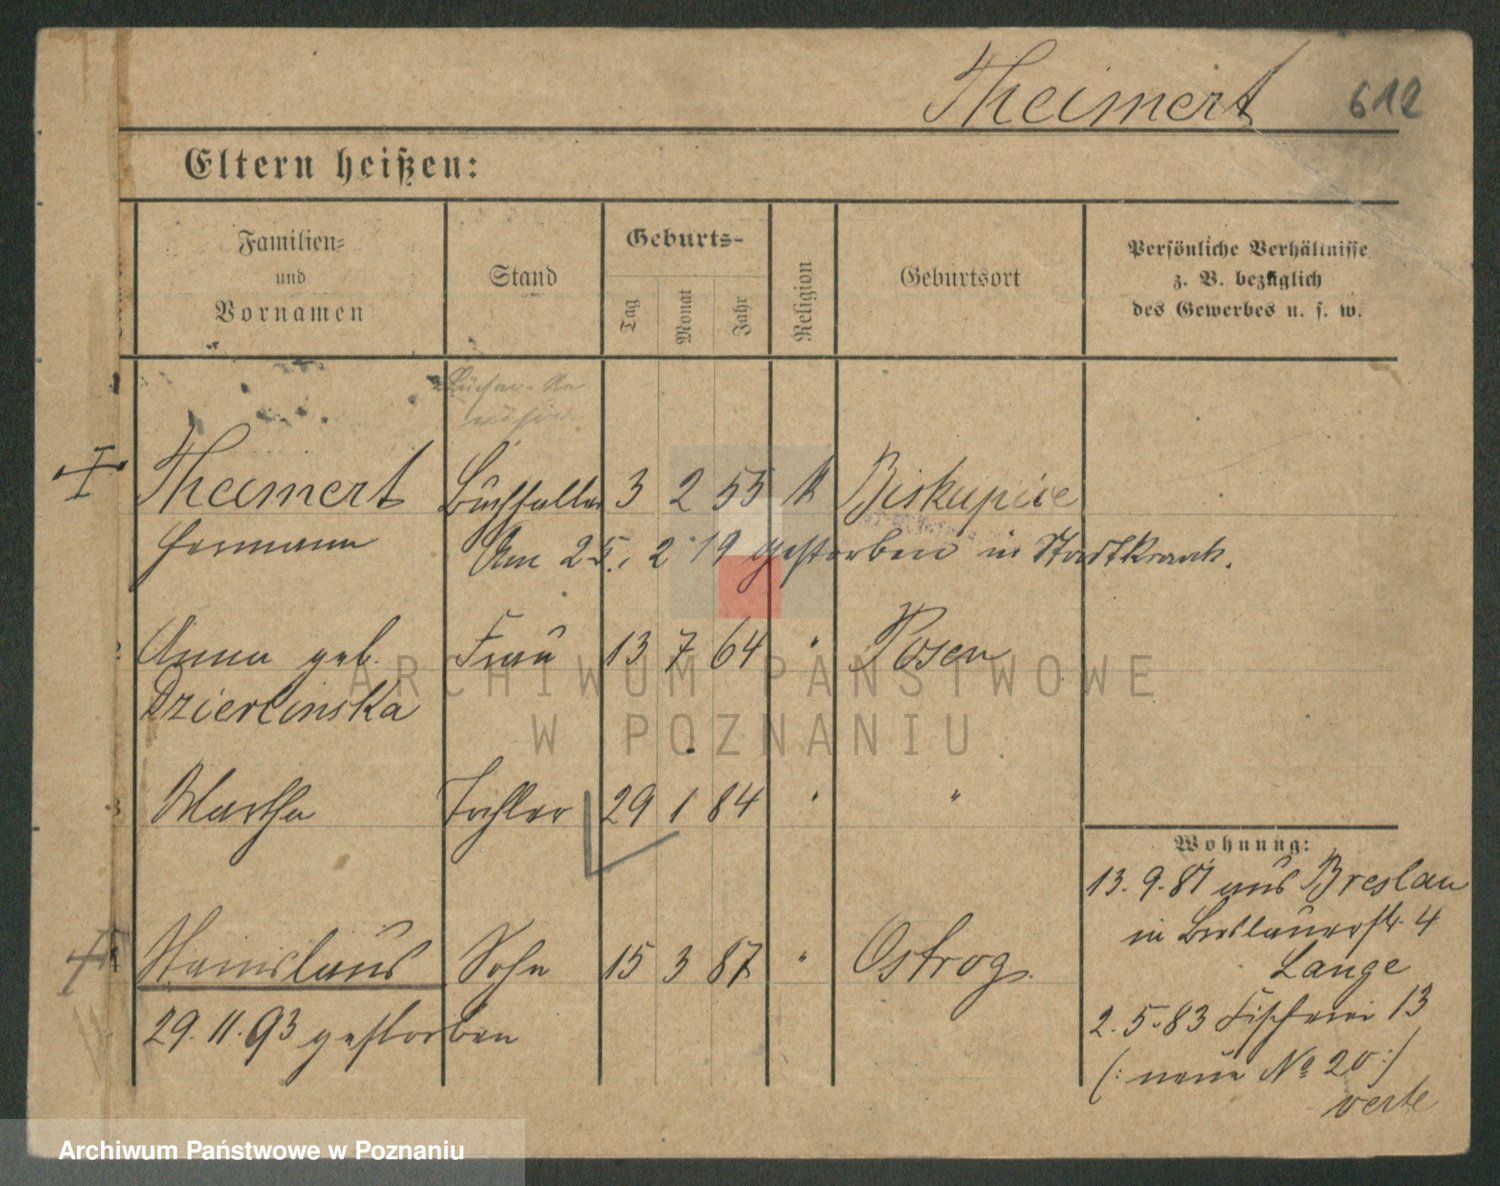 Theimert 612
Eltern heißen:
Familien-
und
Vornamen
Stand
Geburts-
Tag
Monat
Jahr
Religion
Geburtsort
Persönliche Verhältnisse
z. B. bezüglich
des Gewerbes u. s. w.
Bücher-Re
visor
Theimert Buchhalter 3 2 55 k Biskupice
Hermann Am 25. 2 19 gestorben in Stadtkrank.
Anna geb. Frau 13 7 64 " Posen
Dzierlinska
Martha Tochter 29 1 84 " "
Stanislaus Sohn 15 3 87 " Ostrog
29. 11. 93 gestorben
Wohnung:
13. 9. 87 aus Breslau
in Breslauerstr. 4
Lange
2. 5. 83 Fischerei 13
(: neue No 20 :)
verte
ARCHIWUM PAŃSTWOWE
W POZNANIU
Archiwum Państwowe w Poznaniu